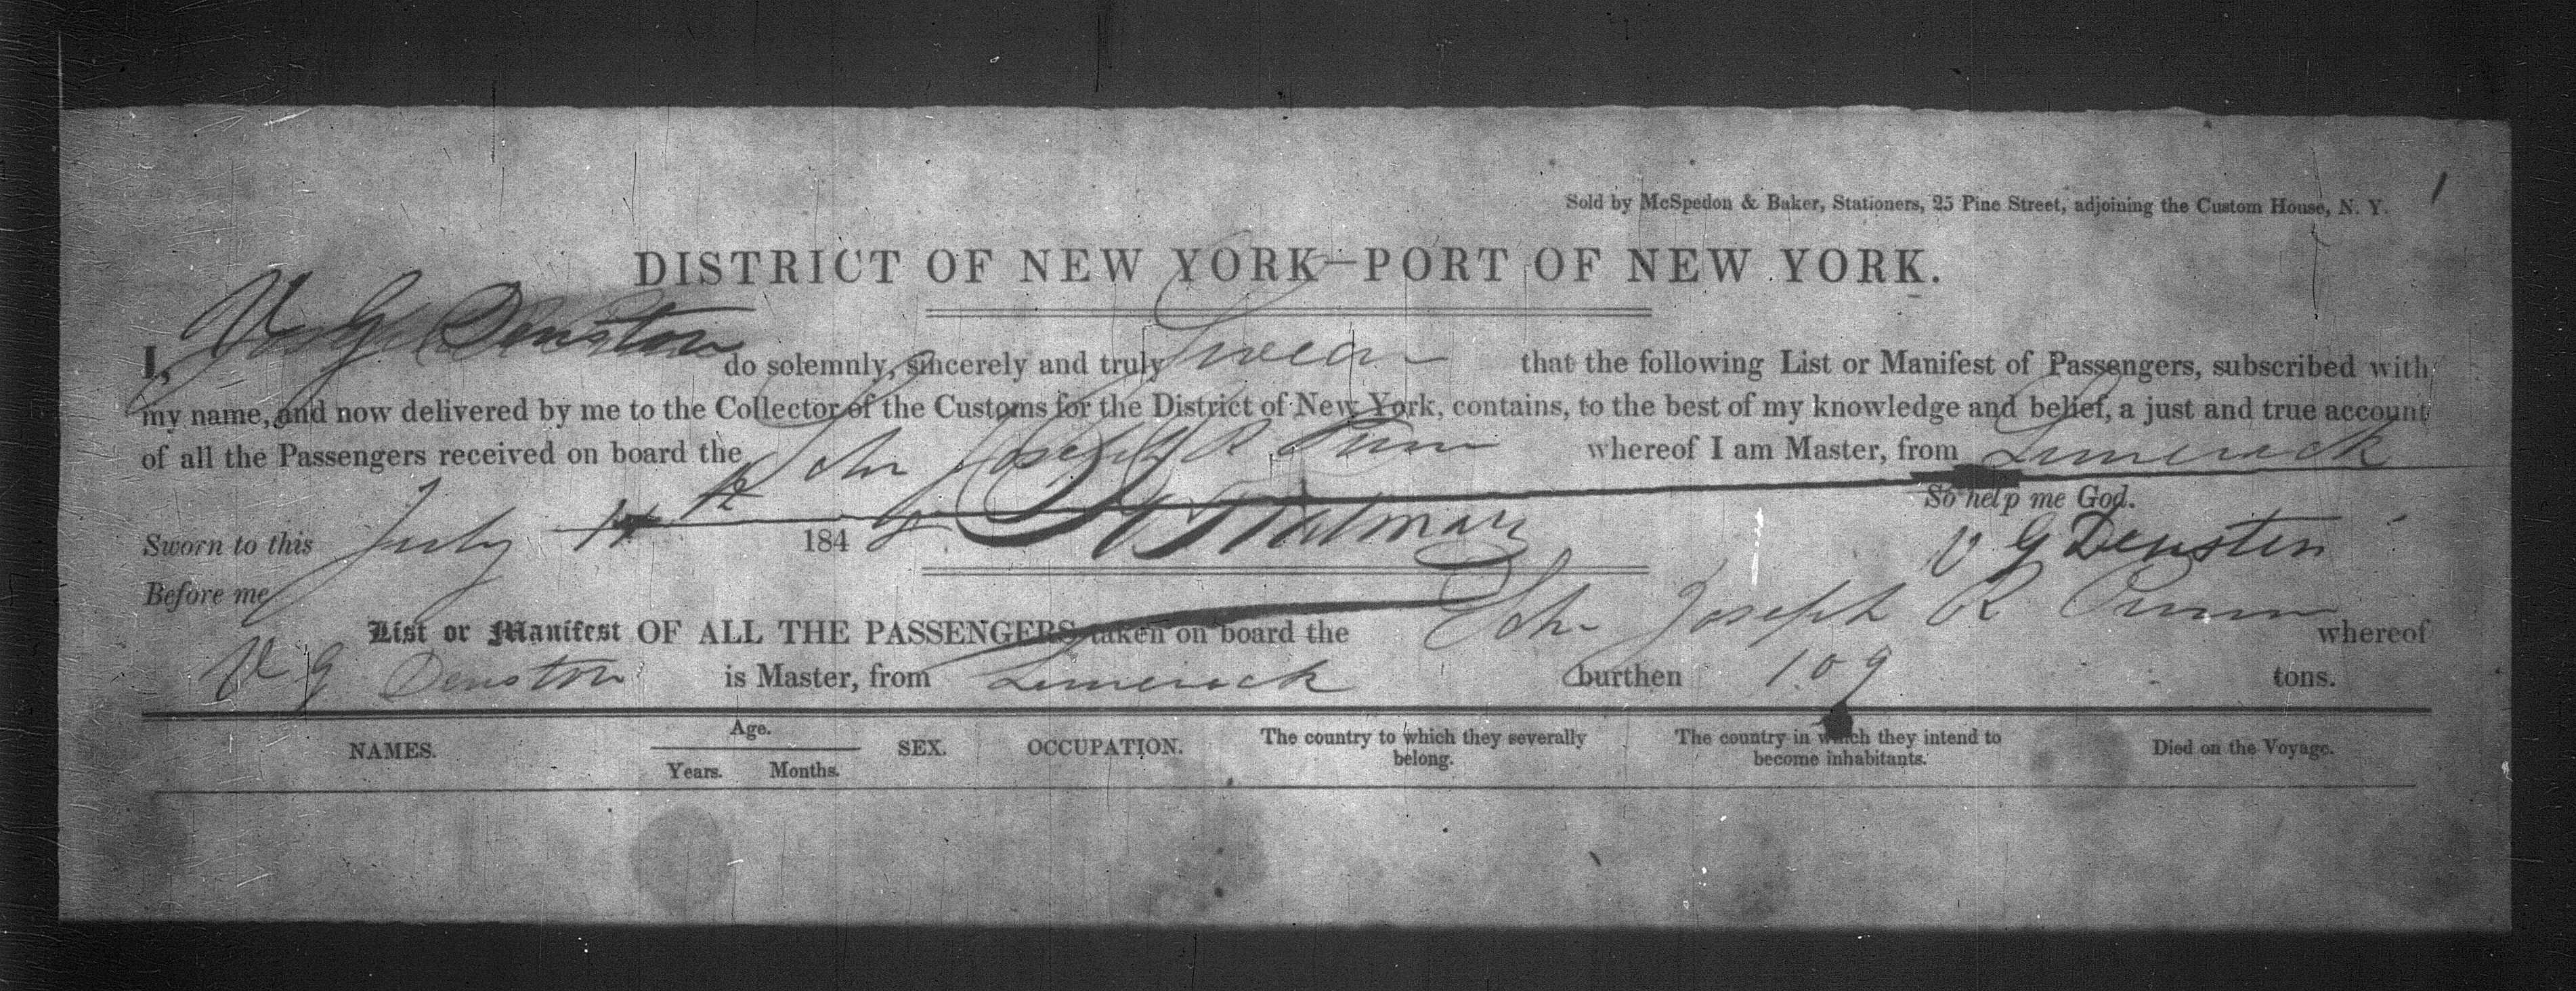 1
Sold by McSpedon & Baker, Stationers, 25 Pine Street, adjoining the Custom House, N. Y.
DISTRICT OF NEW YORK—PORT OF NEW YORK.
I, V G Denston do solemnly, sincerely and truly Swear that the following List or Manifest of Passengers, subscribed with
my name, and now delivered by me to the Collector of the Customs for the District of New York, contains, to the best of my knowledge and belief, a just and true account
of all the Passengers received on board the Schr Joseph R whereof I am Master, from Limerick
So help me God.
Sworn to this July 14th 1848 V G Denston
Before me
List or Manifest OF ALL THE PASSENGERS taken on board the Schr Joseph R whereof
V G Denston is Master, from Limerick burthen 109 tons.
NAMES. Age. Years. Months. SEX. OCCUPATION. The country to which they severally belong. The country in which they intend to become inhabitants. Died on the Voyage.